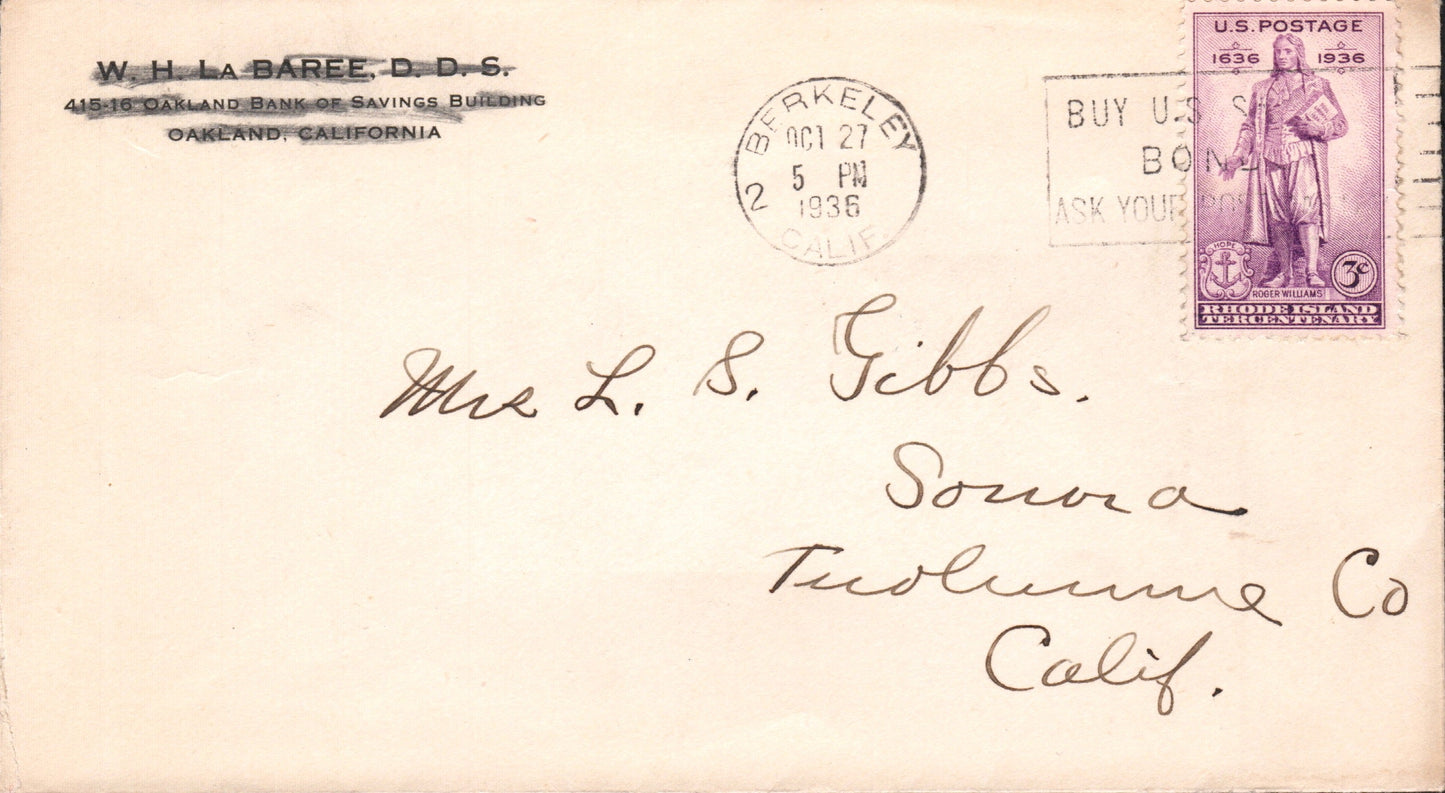 W. H. LA BAREE, D. D. S.
415-16 OAKLAND BANK OF SAVINGS BUILDING
OAKLAND, CALIFORNIA
BERKELEY
OCT 27
5 PM
1936
2
CALIF.
BUY U.S. S
BON
ASK YOUR POST
U.S. POSTAGE
1636 1936
HOPE
3¢
ROGER WILLIAMS
RHODE ISLAND
TERCENTENARY
Mrs L. S. Gibbs.
Sonora
Tuolumne Co
Calif.